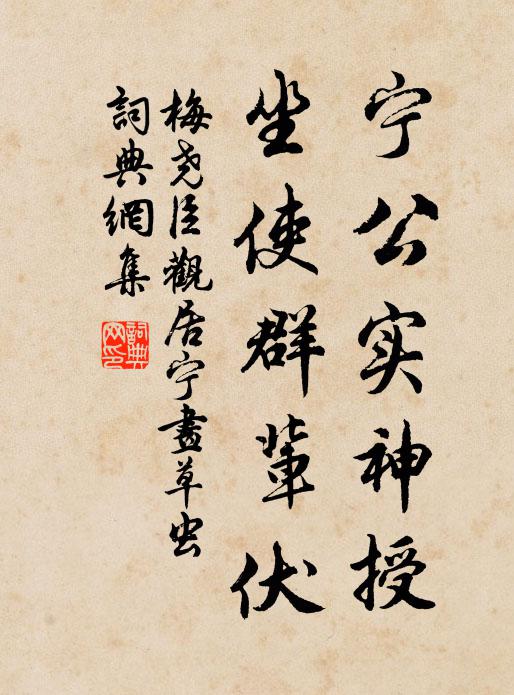 宁公实神授
坐使群輩伏
梅尧臣觀居宁畫草虫
詞典網集
詞典
网印